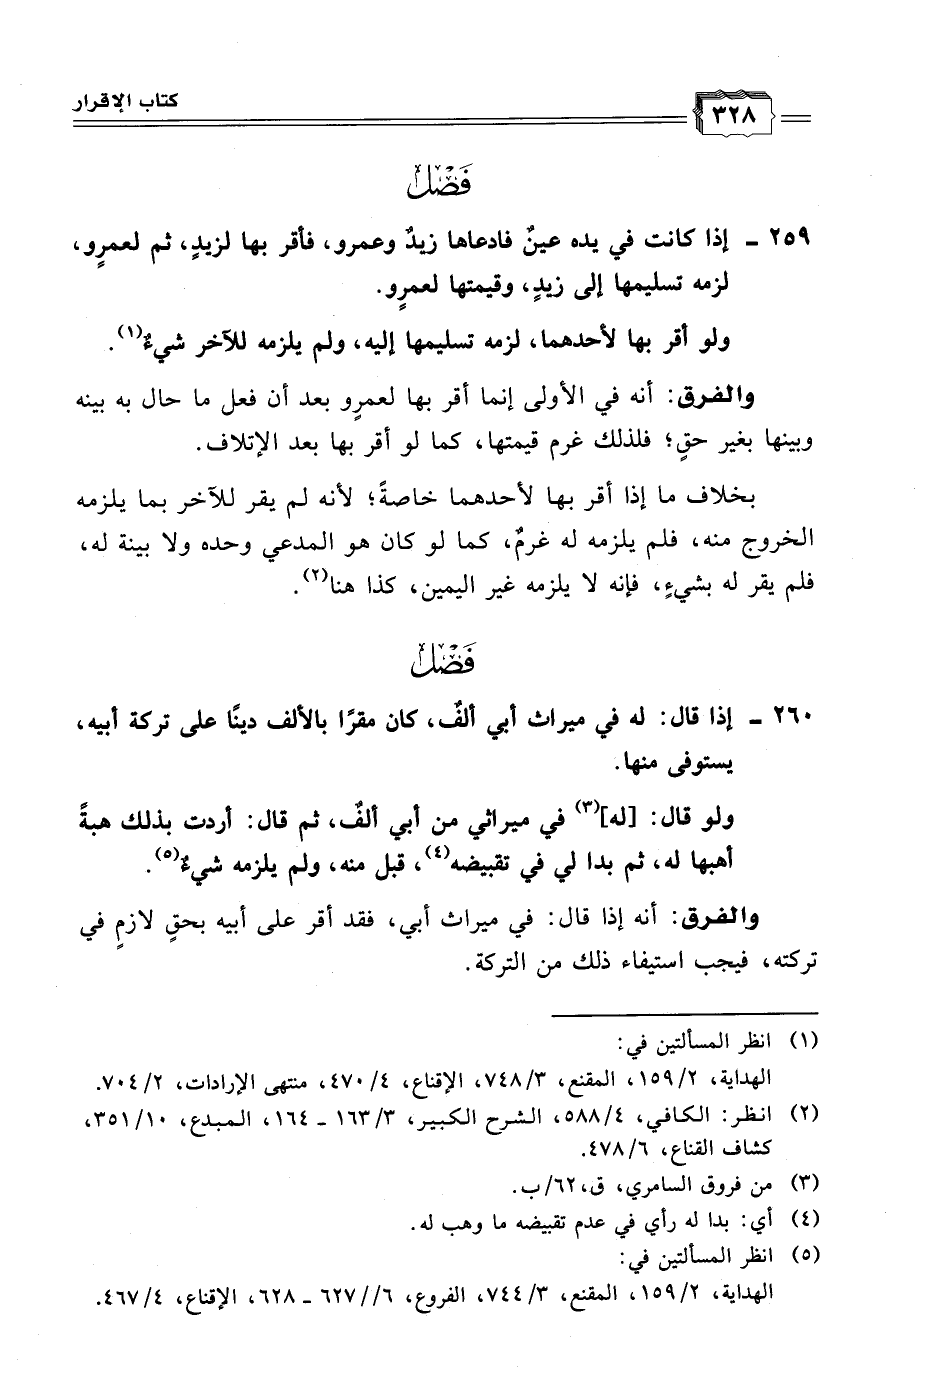 كتاب الإقرار
٣٢٨
فَصْلٌ
٢٥٩ ـ إذا كانت في يده عينٌ فادعاها زيدٌ وعمرو، فأقر بها لزيدٍ، ثم لعمرٍو،
لزمه تسليمها إلى زيدٍ، وقيمتها لعمرٍو.
ولو أقر بها لأحدهما، لزمه تسليمها إليه، ولم يلزمه للآخر شيءٌ(١).
والفرق: أنه في الأولى إنما أقر بها لعمرٍو بعد أن فعل ما حال به بينه
وبينها بغير حقٍ؛ فلذلك غرم قيمتها، كما لو أقر بها بعد الإتلاف.
بخلاف ما إذا أقر بها لأحدهما خاصةً؛ لأنه لم يقر للآخر بما يلزمه
الخروج منه، فلم يلزمه له غرمٌ، كما لو كان هو المدعي وحده ولا بينة له،
فلم يقر له بشيءٍ، فإنه لا يلزمه غير اليمين، كذا هنا(٢).
فَصْلٌ
٢٦٠ ـ إذا قال: له في ميراث أبي ألفٌ، كان مقرًا بالألف دينًا على تركة أبيه،
يستوفى منها.
ولو قال: [له](٣) في ميراثي من أبي ألفٌ، ثم قال: أردت بذلك هبةً
أهبها له، ثم بدا لي في تقبيضه(٤)، قبل منه، ولم يلزمه شيءٌ(٥).
والفرق: أنه إذا قال: في ميراث أبي، فقد أقر على أبيه بحقٍ لازمٍ في
تركته، فيجب استيفاء ذلك من التركة.
(١) انظر المسألتين في:
الهداية، ١٥٩/٢، المقنع، ٧٤٨/٣، الإقناع، ٤٧٠/٤، منتهى الإرادات، ٧٠٤/٢.
(٢) انظر: الكافي، ٥٨٨/٤، الشرح الكبير، ١٦٣/٣ ـ ١٦٤، المبدع، ٣٥١/١٠،
كشاف القناع، ٤٧٨/٦.
(٣) من فروق السامري، ق،٦٢/ب.
(٤) أي: بدا له رأي في عدم تقبيضه ما وهب له.
(٥) انظر المسألتين في:
الهداية، ١٥٩/٢، المقنع، ٧٤٤/٣، الفروع، ٦//٦٢٧ ـ ٦٢٨، الإقناع، ٤٦٧/٤.